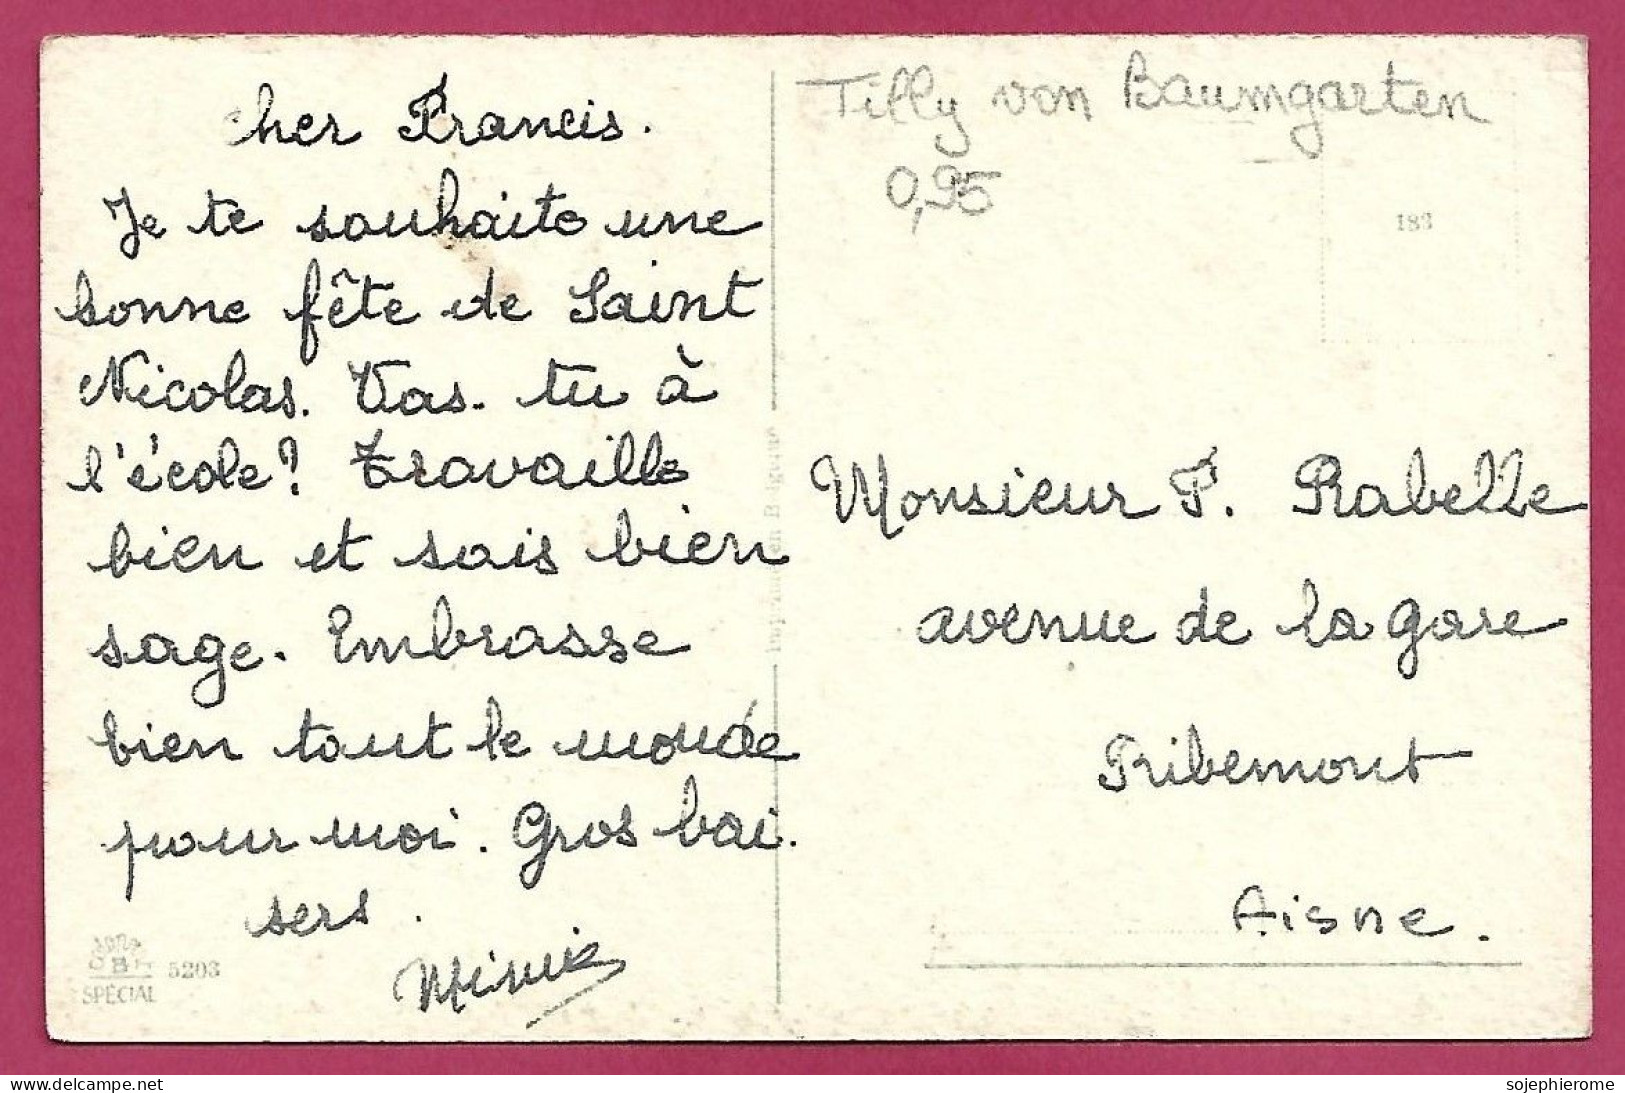 cher Francis.
Je te souhaite une
bonne fête de Saint
Nicolas. Vas-tu à
l'école? Travaille
bien et sois bien
sage. Embrasse
bien tout le monde
pour moi. Gros bai.
sers.
5203
SPÉCIAL
Tilly von Baumgarten
0,95
183
Monsieur F. Rabelle
avenue de la gare
Ribemont
Aisne.
www.delcampe.net
sojephierome